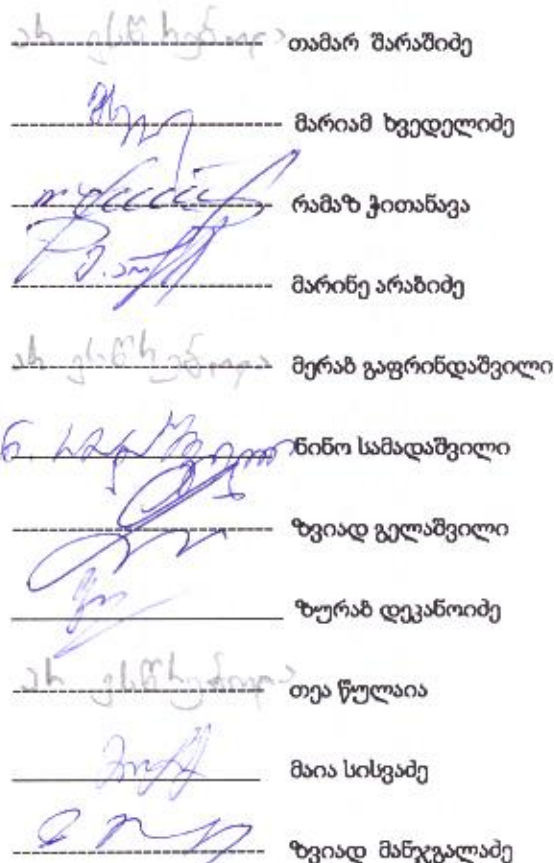 არ ესწრებოდა თამარ შარაშიძე
მარიამ ხვედელიძე
რამაზ ჭითანავა
მარინე არაბიძე
არ ესწრებოდა მერაბ გაფრინდაშვილი
ნინო სამადაშვილი
ზვიად გელაშვილი
ზურაბ დეკანოიძე
არ ესწრებოდა თეა წულაია
მაია სისვაძე
ზვიად მანჯგალაძე